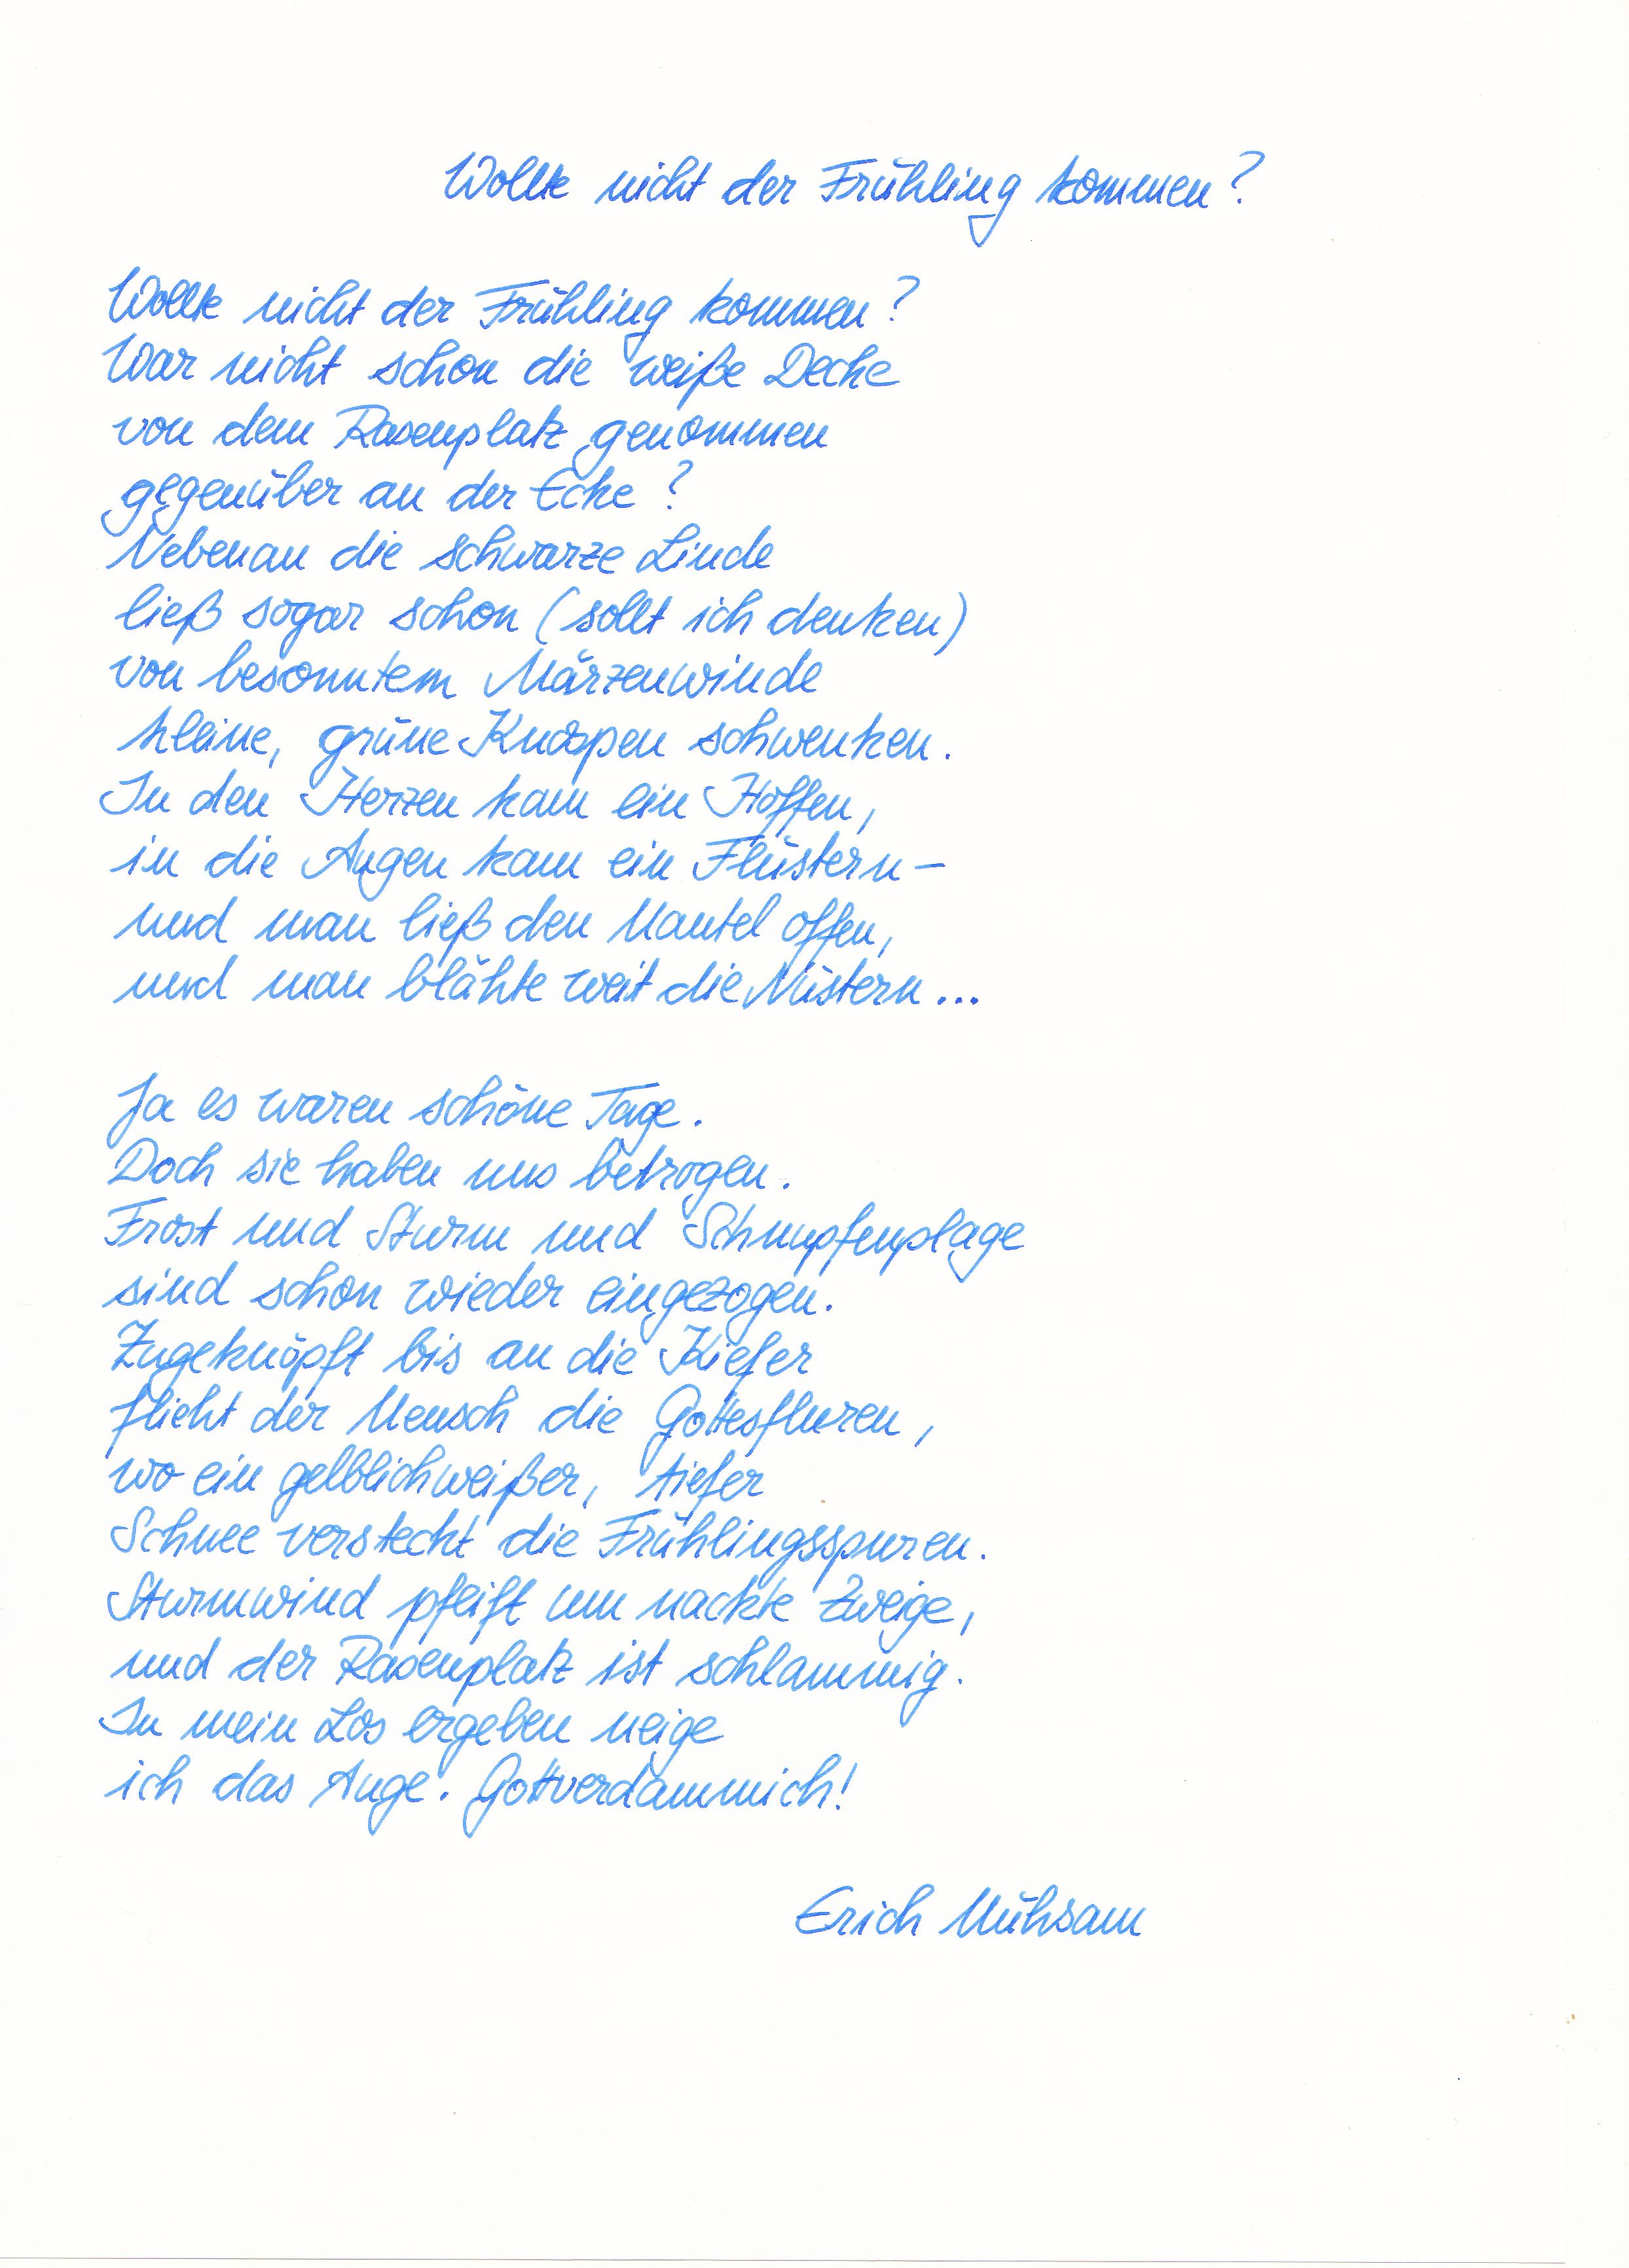 Wollte nicht der Frühling kommen?
Wollte nicht der Frühling kommen?
War nicht schon die weiße Decke
von dem Rasenplatz genommen
gegenüber an der Ecke?
Nebenan die schwarze Linde
ließ sogar schon (sollt ich denken)
von besonntem Märzenwinde
kleine, grüne Knospen schwenken.
In den Herzen kam ein Hoffen,
in die Augen kam ein Flüstern –
und man ließ den Mantel offen,
und man blähte weit die Nüstern...
Ja es waren schöne Tage.
Doch sie haben uns betrogen.
Frost und Sturm und Schnupfenplage
sind schon wieder eingezogen.
Zugeknöpft bis an die Kiefer
flieht der Mensch die Gottesfluren,
wo ein gelblichweißer, tiefer
Schnee versteckt die Frühlingsspuren.
Sturmwind pfeift um nackte Zweige,
und der Rasenplatz ist schlammig.
In mein Los ergeben neige
ich das Auge. Gottverdammich!
Erich Mühsam